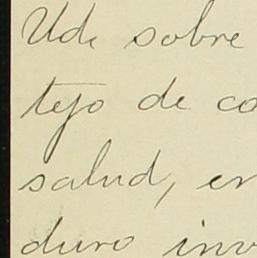 Uds sobre
tejo de co
salud, en
duro inv